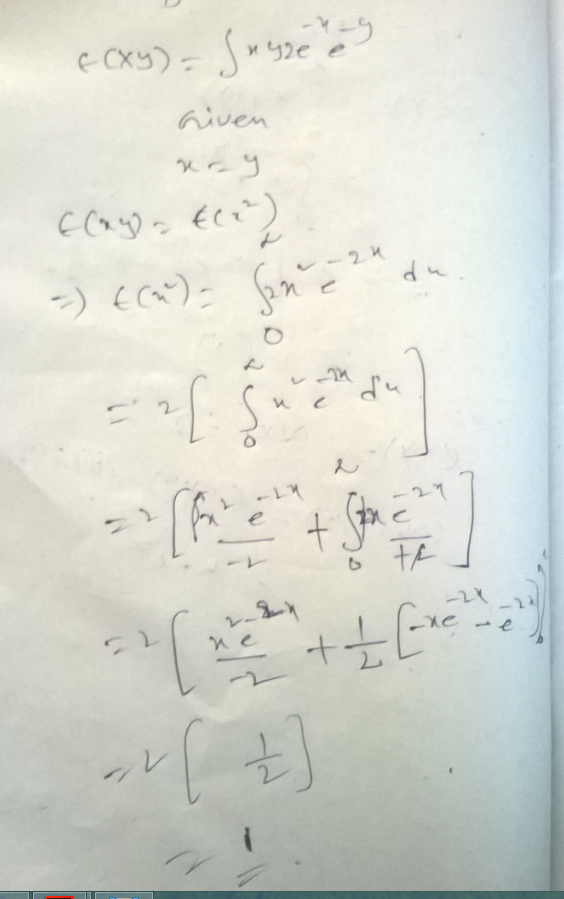 E(XY) = ∫ x y 2e^-x e^-y
Given
x = y
E(xy) = E(x²)
=) E(x²) = ∫_0^α 2x² e^-2x dx.
= 2 [ ∫_0^α x² e^-2x dx ]
= 2 [ x² e^-2x / -2 + ∫_0^α 2x e^-2x / +2 ]
= 2 [ x² e^-2x / -2 + 1/2 [ -xe^-2x - e^-2x ] ]
= 2 [ 1/2 ]
= 1.